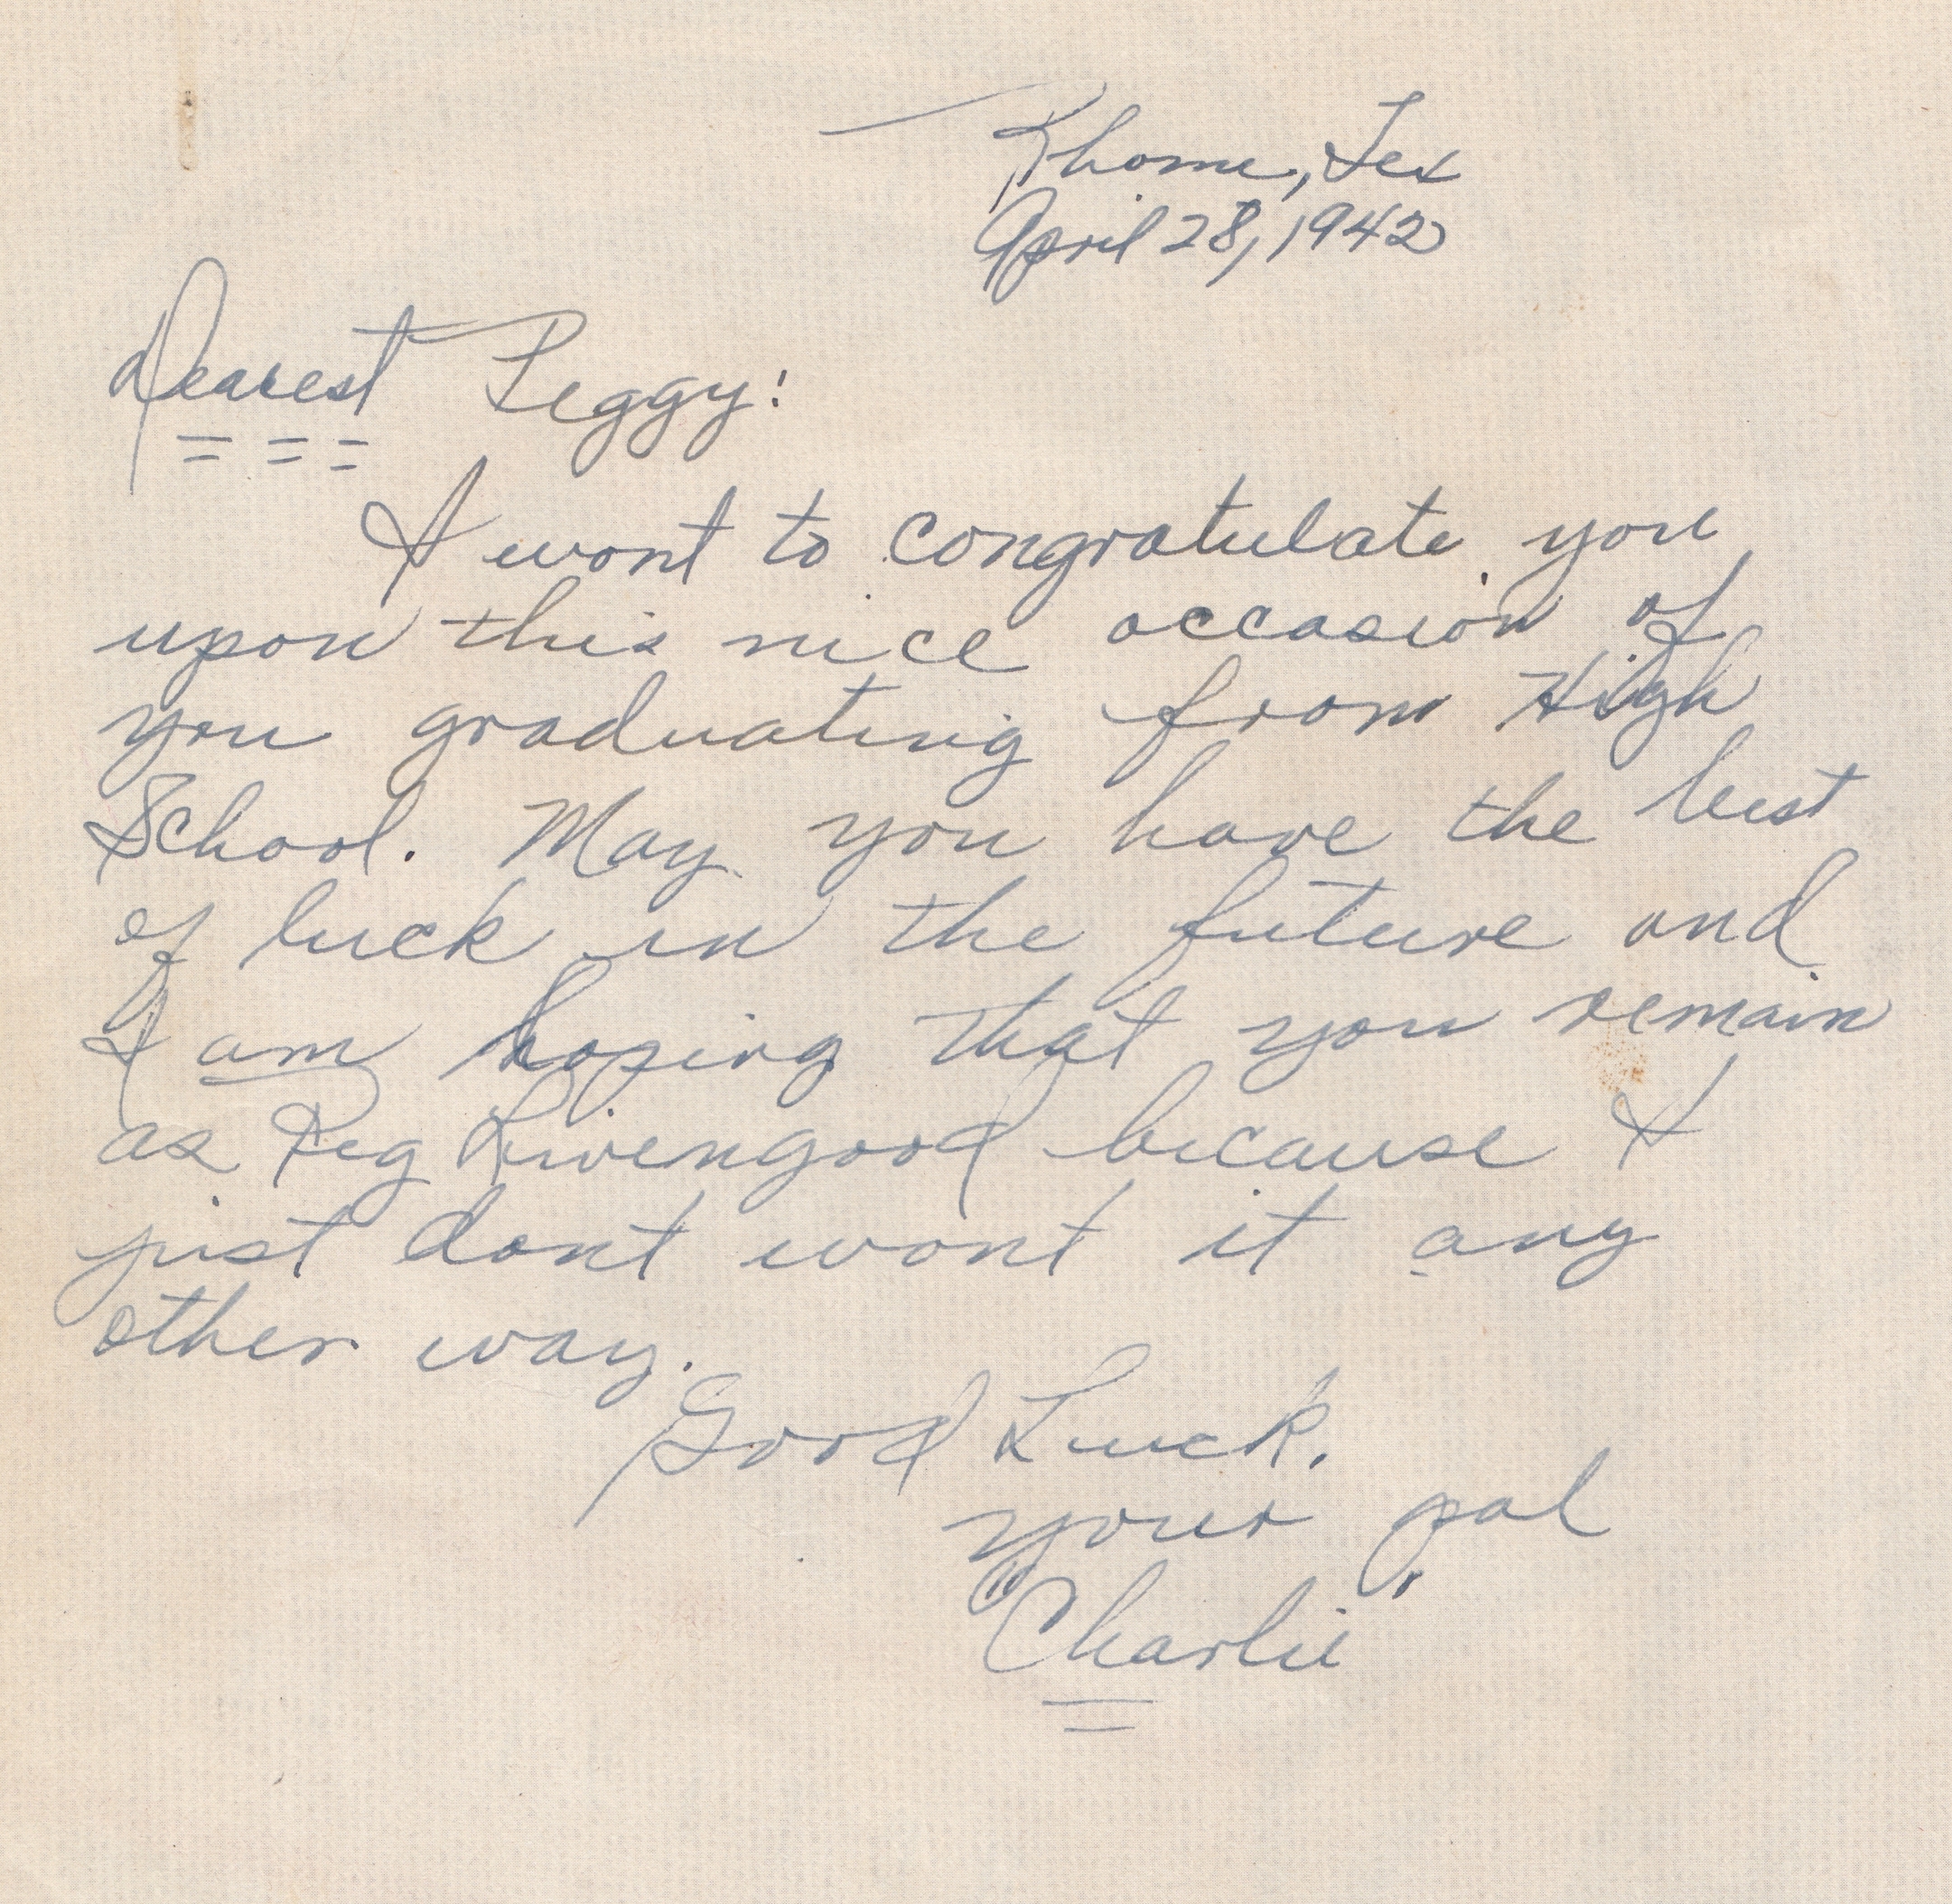 Rhome, Tex
April 28, 1942
Dearest Peggy:
I want to congratulate you
upon this nice occasion of
you graduating from High
School. May you have the best
of luck in the future and
I am hoping that you remain
as Peg Livengood because I
just dont want it any
other way.
Good Luck,
your pal
"Charlie"